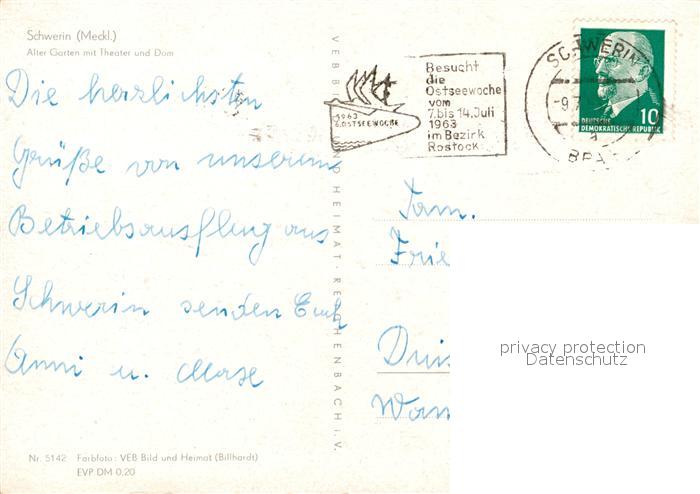 Schwerin (Meckl.)
Alter Garten mit Theater und Dom
Die herzlichsten
Grüße von unserem
Betriebsausflug aus
Schwerin senden Euch
Anni u.
Nr. 5142 Farbfoto: VEB Bild und Heimat (Billhardt)
EVP DM 0,20
HEIMAT · REICHENBACH i. V.
1963
OSTSEEWOCHE
Besucht
die
Ostseewoche
vom
7. bis 14. Juli
1963
im Bezirk
Rostock
SCHWERIN
-9.7
DEUTSCHE
DEMOKRATISCHE REPUBLIK
10
Fam.
Frie
Duis
Wan
privacy protection
Datenschutz